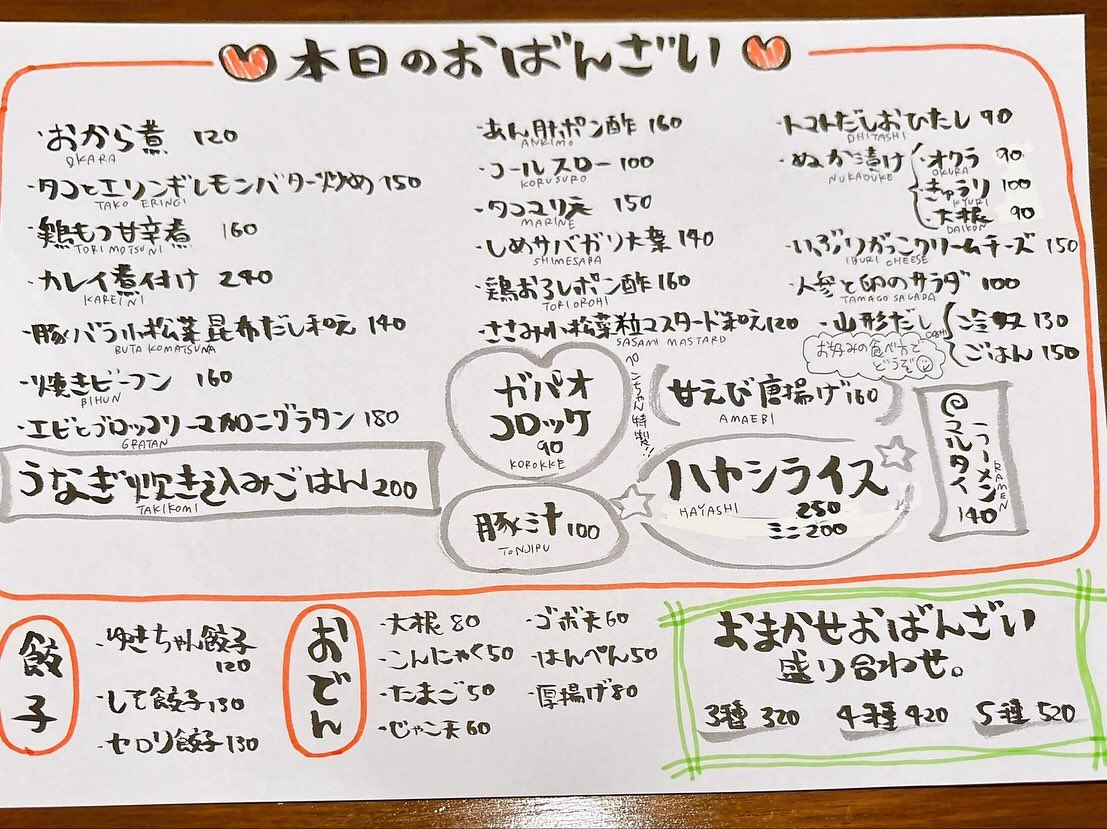 本日のおばんざい
・おから煮 120
OKARA
・タコとエリンギレモンバター炒め 150
TAKO ERINGI
・鶏もつ甘辛煮 160
TORI MOTSUNI
・カレイ煮付け 240
KAREINI
・豚バラ小松菜昆布だし和え 140
BUTA KOMATSUNA
・焼きビーフン 160
BIHUN
・エビとブロッコリーマカロニグラタン 180
GRATAN
うなぎ炊き込みごはん 200
TAKIKOMI
・あん肝ポン酢 160
ANKIMO
・コールスロー 100
KORUSURO
・タコマリネ 150
MARINE
・しめサバガリ大葉 140
SHIMESABA
・鶏おろしポン酢 160
TORIOROHI
・ささみ小松菜粒マスタード和え 120
SASAMI MASTARD
ガパオ
コロッケ
90
KOROKKE
豚汁 100
TONJIRU
・トマトだしおひたし 90
OHITASHI
・ぬか漬け
NUKADUKE
・オクラ 90
OKURA
・きゅうり 100
KYURI
・大根 90
DAIKON
・いぶりがっこクリームチーズ 150
IBURI CHEESE
・人参と卵のサラダ 100
TAMAGO SALADA
・山形だし
DASHI
・冷奴 130
・ごはん 150
お好みの食べ方で
どうぞ
甘えび唐揚げ 160
AMAEBI
ちゃん特製!!
ハヤシライス
HAYASHI
250
ミニ 200
マルタイ
ラーメン
RAMEN
140
餃子
・ゆきちゃん餃子
120
・しそ餃子 130
・セロリ餃子 130
おでん
・大根 80
・こんにゃく 50
・たまご 50
・じゃこ天 60
・ゴボ天 60
・はんぺん 50
・厚揚げ 80
おまかせおばんざい
盛り合わせ。
3種 320 4種 420 5種 520